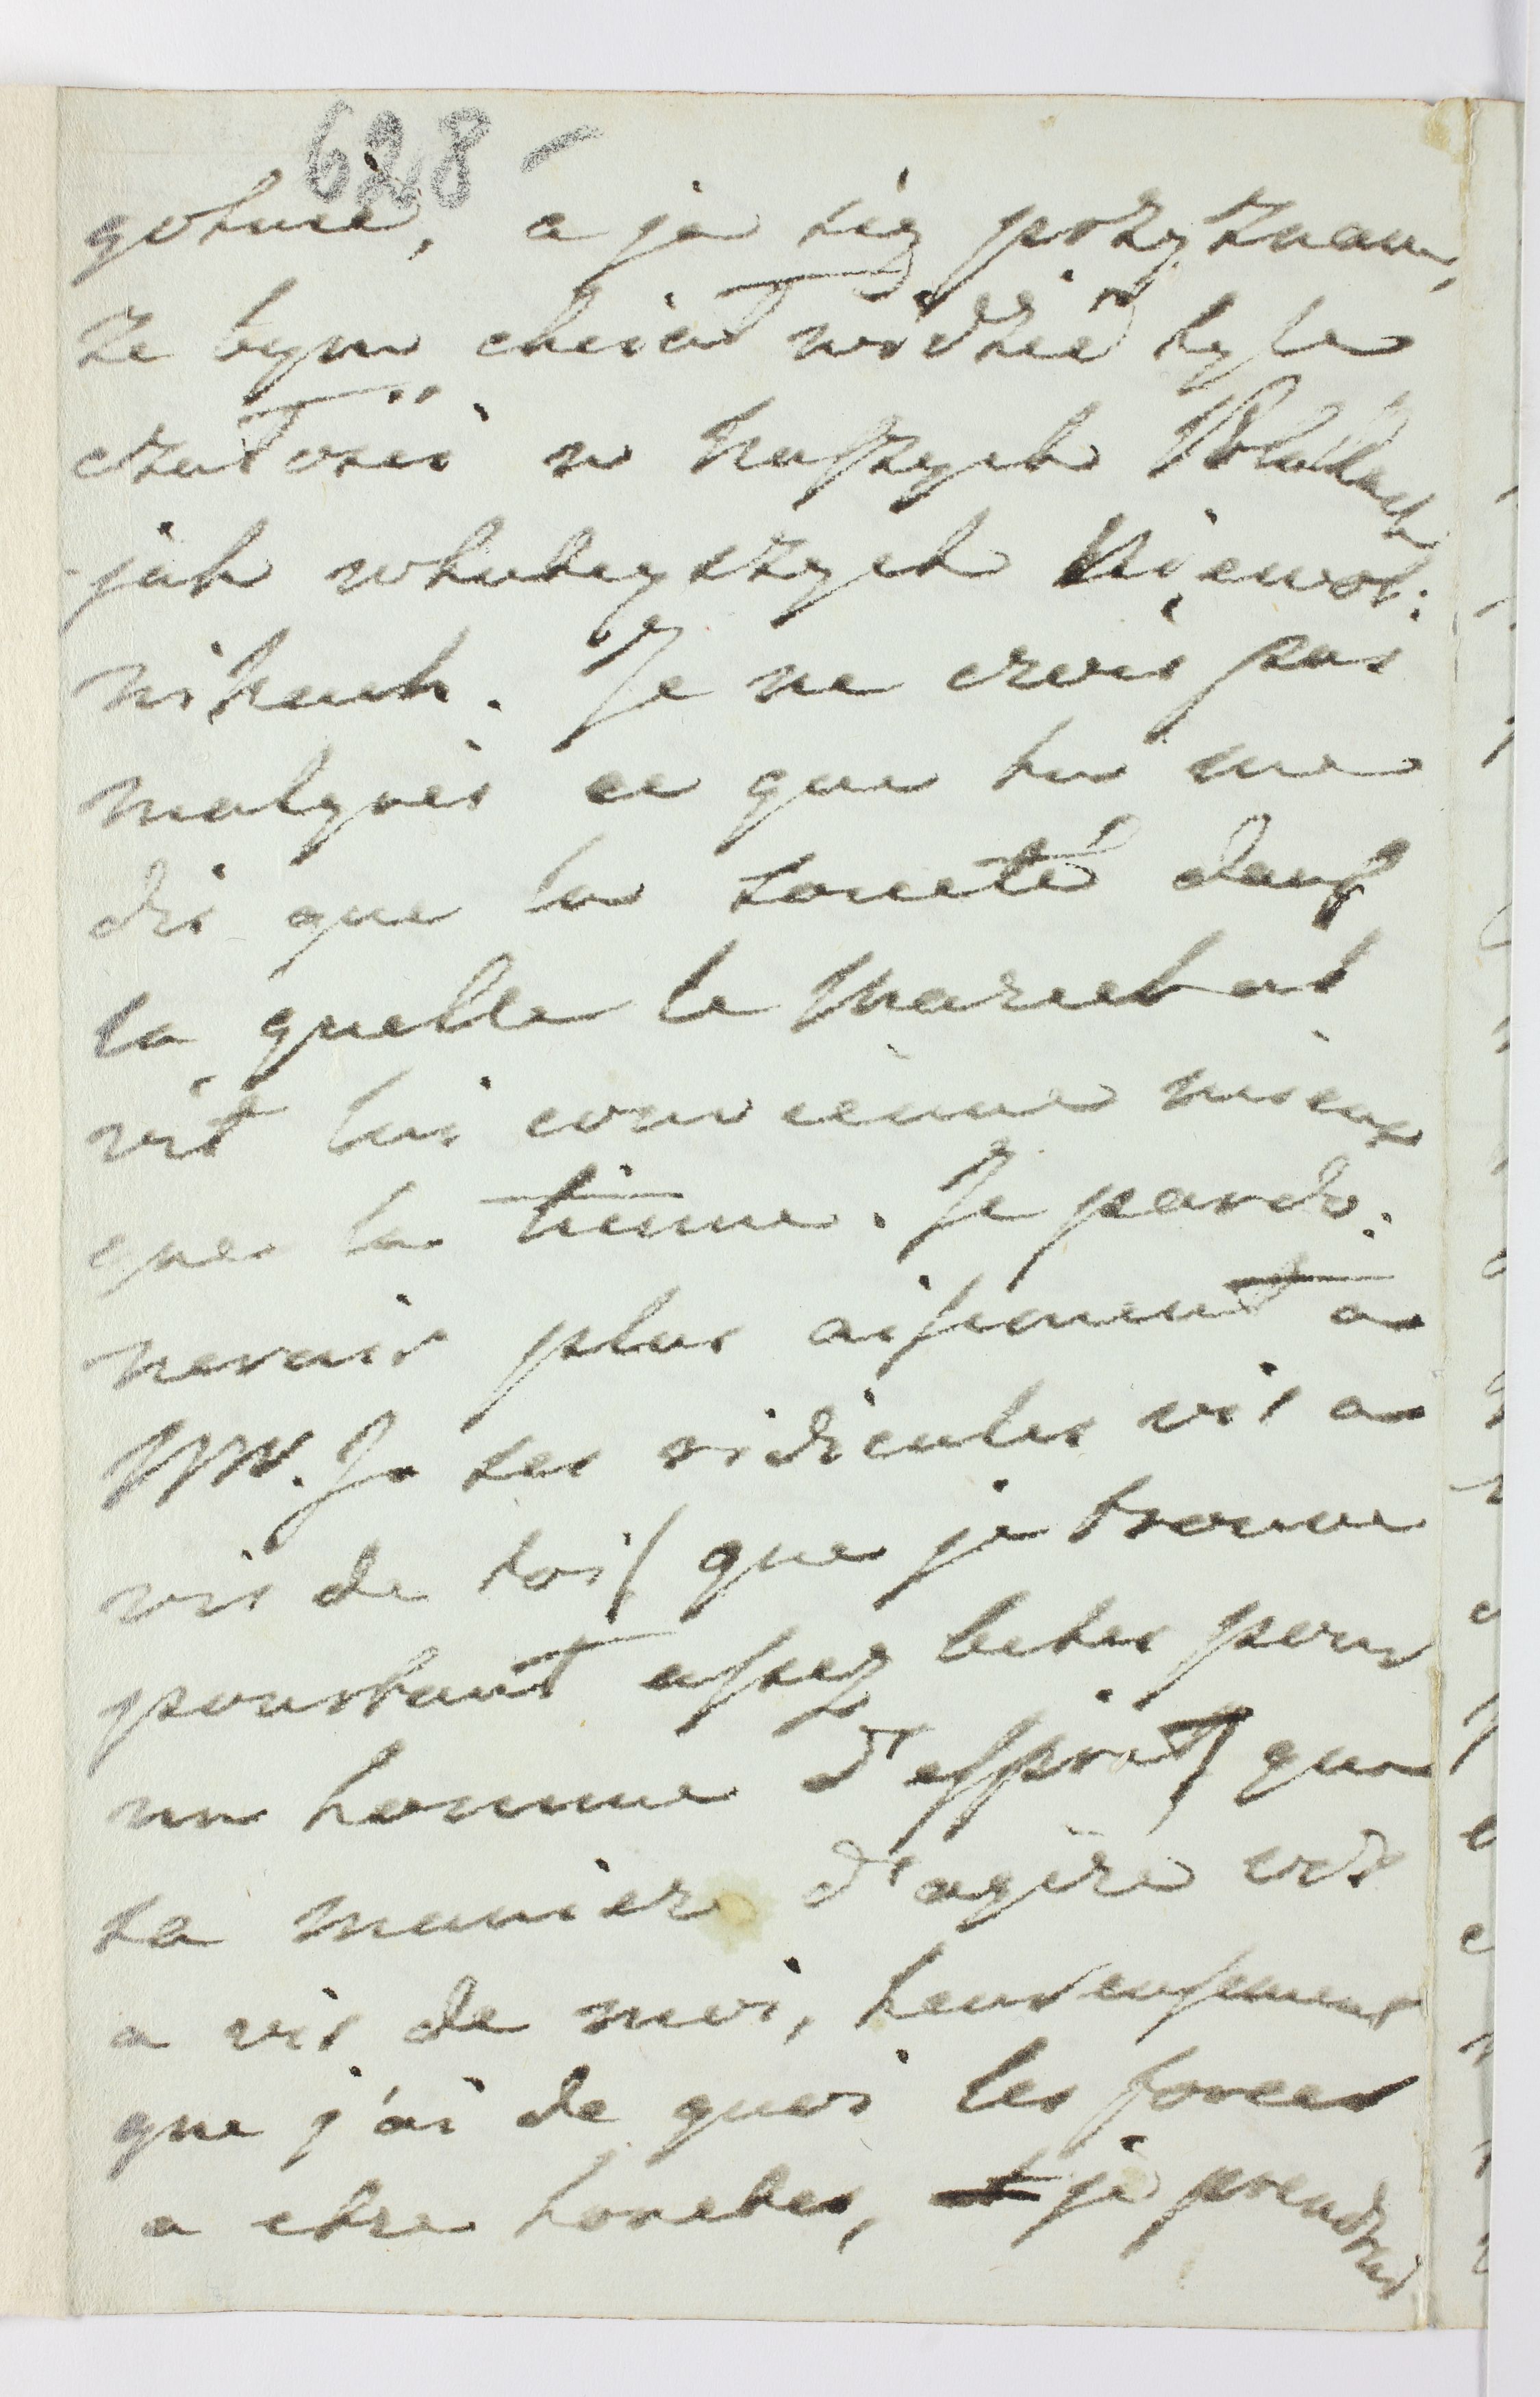 628 -
gotuie, a ja się pożyznam,
że bym chciał widzieć tyle
czułosci w naszych Polakach
jak w tuteyszych
nikach. Je ne crois pas
malgres ce que tu me
dis que la société dans
la quelle le Marechal
vit lui convienne mieux
que la tienne. Je pardo:
nerais plus aisement a
MM. Jo ses ridicules vis a
vis de toi / que je trouve
pourtant assez betes pour
un homme d'esprit / que
sa manier d'agire vis
a vis de moi, heureusement
que j'ai de quoi les forcer
a etre honetes, je prendrai